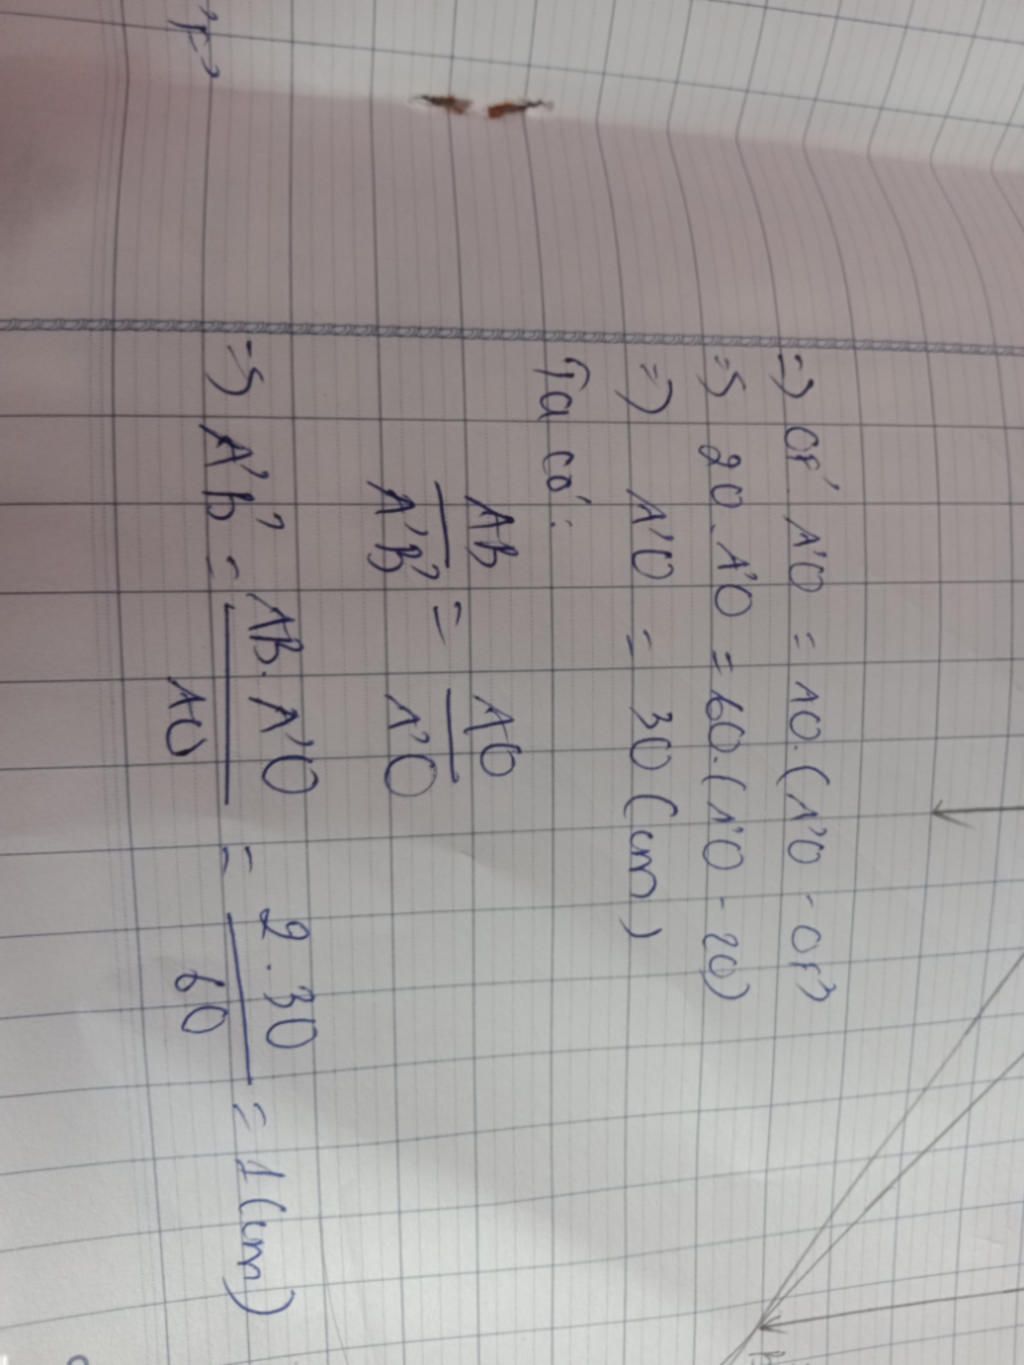 => OF'. A'O = AO.(A'O - OF')
=> 20. A'O = 60.(A'O - 20)
=> A'O = 30 (cm)
Ta có:
AB/A'B' = AO/A'O
=> A'B' = AB. A'O/AO = 2.30/60 = 1 (cm)